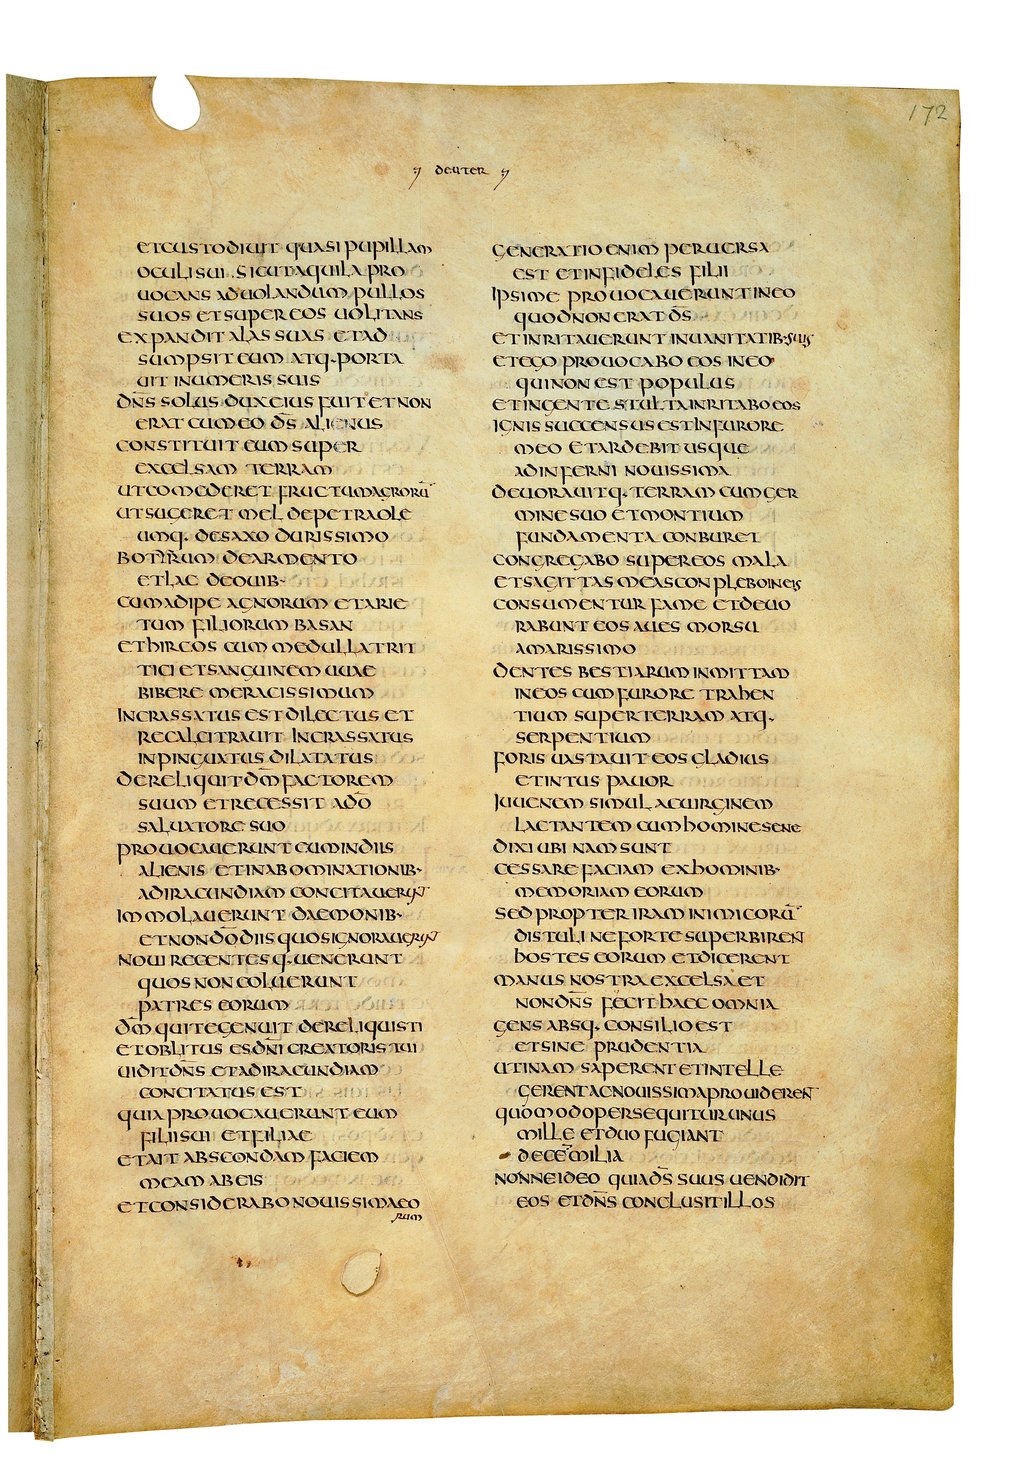 172
DEUTER
ETCUSTODIUIT QUASI PUPILLAM
OCULI SUI. SICUTAQUILA PRO
UOCANS ADUOLANDUM PULLOS
SUOS ETSUPER EOS UOLITANS
EXPANDIT ALAS SUAS ETAD
SUMPSIT EUM ATQ·PORTA
UIT INUMERIS SUIS
DN̅S SOLUS DUXEIUS FUIT ETNON
ERAT CUMEO D̅S ALIENUS
CONSTITUIT EUM SUPER
EXCELSAM TERRAM
UTCOMEDERET FRUCTUMAGRORU̅
UTSUGERET MEL DEPETRAOLE
UMQ· DESAXO DURISSIMO
BOTIRUM DEARMENTO
ETLAC DEOUIB·
CUMADIPE AGNORUM ETARIE
TUM FILIORUM BASAN
ETHIRCOS CUM MEDULLATRIT
TICI ETSANGUINEM UUAE
BIBERE MERACISSIMUM
INCRASSATUS EST DILECTUS ET
RECALCITRAUIT INCRASSATUS
INPINGUATUS DILATATUS
DERELIQUIT DM̅ FACTOREM
SUUM ETRECESSIT ADO̅
SALUATORE SUO
PROUOCAUERUNT EUMINDIIS
ALIENIS ETINABOMINATIONIB·
ADIRACUNDIAM CONCITAUERUNT
IMMOLAUERUNT DAEMONIB·
ETNONDO̅ DIIS QUOSIGNORAUERUNT
NOUI RECENTESQ·UENERUNT
QUOS NON COLUERUNT
PATRES EORUM
DM̅ QUITEGENUIT DERELIQUISTI
ETOBLITUS ESDN̅I CREATORISTUI
UIDITDN̅S ETADIRACUNDIAM
CONCITATUS EST
QUIAPROUOCAUERUNT EUM
FILIISUI ETFILIAE
ETAIT ABSCONDAM FACIEM
MEAM ABEIS
ETCONSIDERABO NOUISSIMAEO
RUM
GENERATIO ENIM PERUERSA
EST ETINFIDELES FILII
IPSIME PROUOCAUERUNT INEO
QUODNON ERAT D̅S
ETINRITAUERUNT INUANITATIB·SUIS
ETEGO PROUOCABO EOS INEO
QUINON EST POPULUS
ETINGENTE STULTAINRITABO EOS
IGNIS SUCCENSUS ESTINFURORE
MEO ETARDEBIT USQUE
ADINFERNI NOUISSIMA
DEUORAUITQ·TERRAM CUMGER
MINESUO ETMONTIUM
FUNDAMENTA CONBURET
CONGREGABO SUPEREOS MALA
ETSAGITTAS MEASCONPLEBOINEIS
CONSUMENTUR FAME ETDEUO
RABUNT EOS AUES MORSU
AMARISSIMO
DENTES BESTIARUM INMITTAM
INEOS CUMFURORE TRAHEN
TIUM SUPERTERRAM ATQ·
SERPENTIUM
FORIS UASTAUIT EOS GLADIUS
ETINTUS PAUOR
IUUENEM SIMUL ACUIRGINEM
LACTANTEM CUMHOMINESENE
DIXI UBI NAM SUNT
CESSARE FACIAM EXHOMINIB·
MEMORIAM EORUM
SED PROPTER IRAM INIMICORU̅
DISTULI NEFORTE SUPERBIRENT
HOSTES EORUM ETDICERENT
MANUS NOSTRA EXCELSA ET
NONDN̅S FECIT HAEC OMNIA
GENS ABSQ· CONSILIO EST
ETSINE PRUDENTIA
UTINAM SAPERENT ETINTELLE
GERENT ACNOUISSIMAPROUIDERENT
QUOMODOPERSEQUITURUNUS
MILLE ETDUO FUGIANT
DECE̅MILIA
NONNEIDEO QUIAD̅S SUUS UENDIDIT
EOS ETDN̅S CONCLUSITILLOS